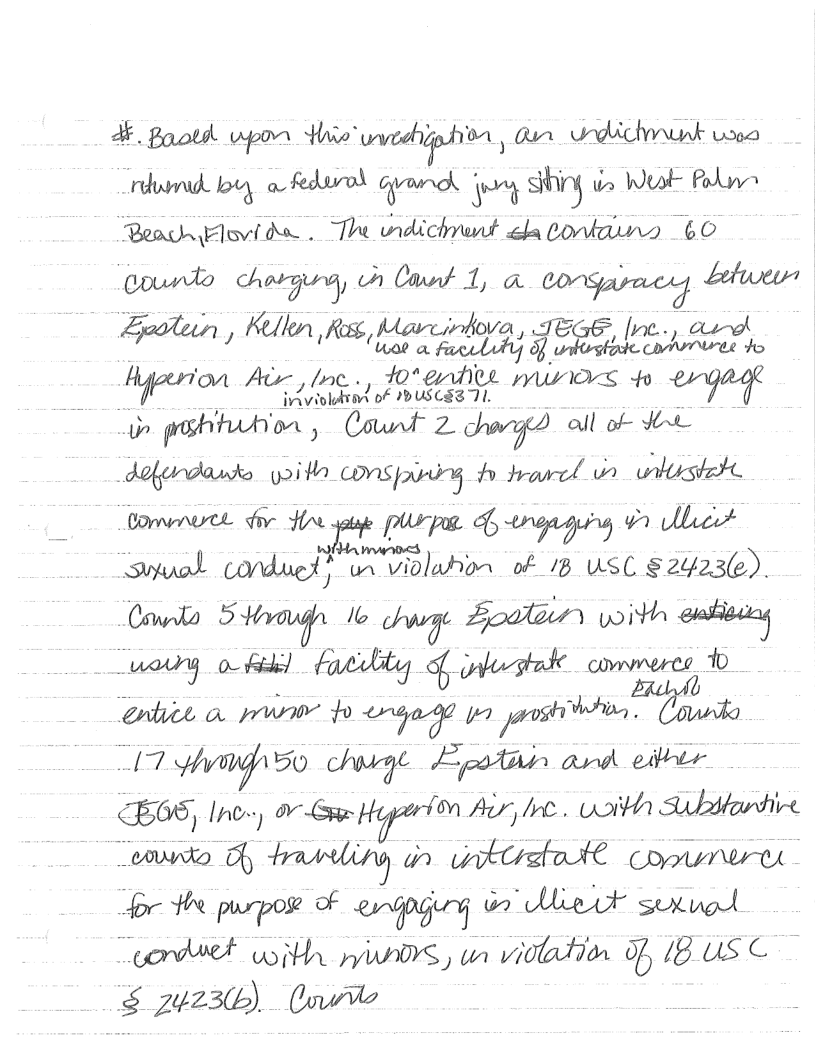 #. Based upon this investigation, an indictment was
returned by a federal grand jury sitting in West Palm
Beach, Florida. The indictment contains 60
counts charging, in Count 1, a conspiracy between
Epstein, Kellen, Ross, Marcinkova, JEGE, Inc., and
use a facility of interstate commerce to
Hyperion Air, Inc., to ^ entice minors to engage
in violation of 18 USC §371.
in prostitution, Count 2 charges all of the
defendants with conspiring to travel in interstate
commerce for the purpose of engaging in illicit
with minors
sexual conduct ^, in violation of 18 USC §2423(e).
Counts 5 through 16 charge Epstein with enticing
using a facility of interstate commerce to
Each of
entice a minor to engage in prostitution. Counts
17 through 50 charge Epstein and either
JEGE, Inc., or Hyperion Air, Inc. with substantive
counts of traveling in interstate commerce
for the purpose of engaging in illicit sexual
conduct with minors, in violation of 18 USC
§ 2423(b). Counts